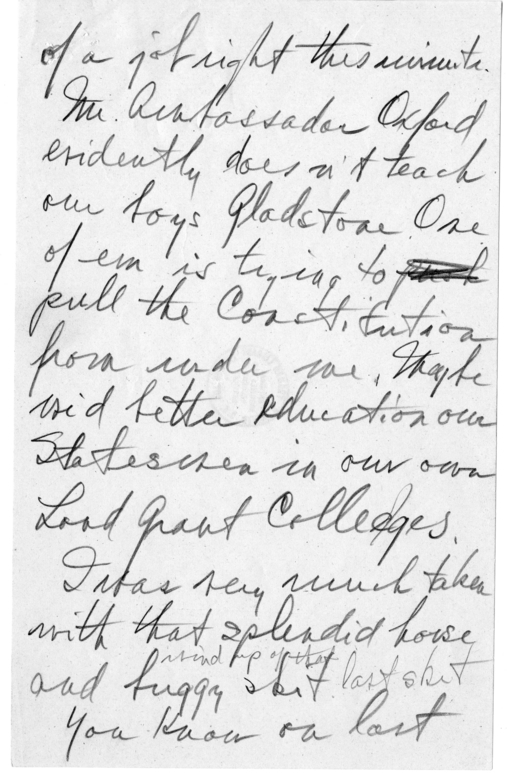 of a job right this minute.
Mr. Ambassador Oxford
evidently does n't teach
our boys Gladstone. One
of em is trying to push
pull the Constitution
from under me. Maybe
we'd better education our
Statesmen in our own
Land Grant Colleges.
I was very much taken
with that splendid horse
wind up of that
and buggy skit last skit
You know on last